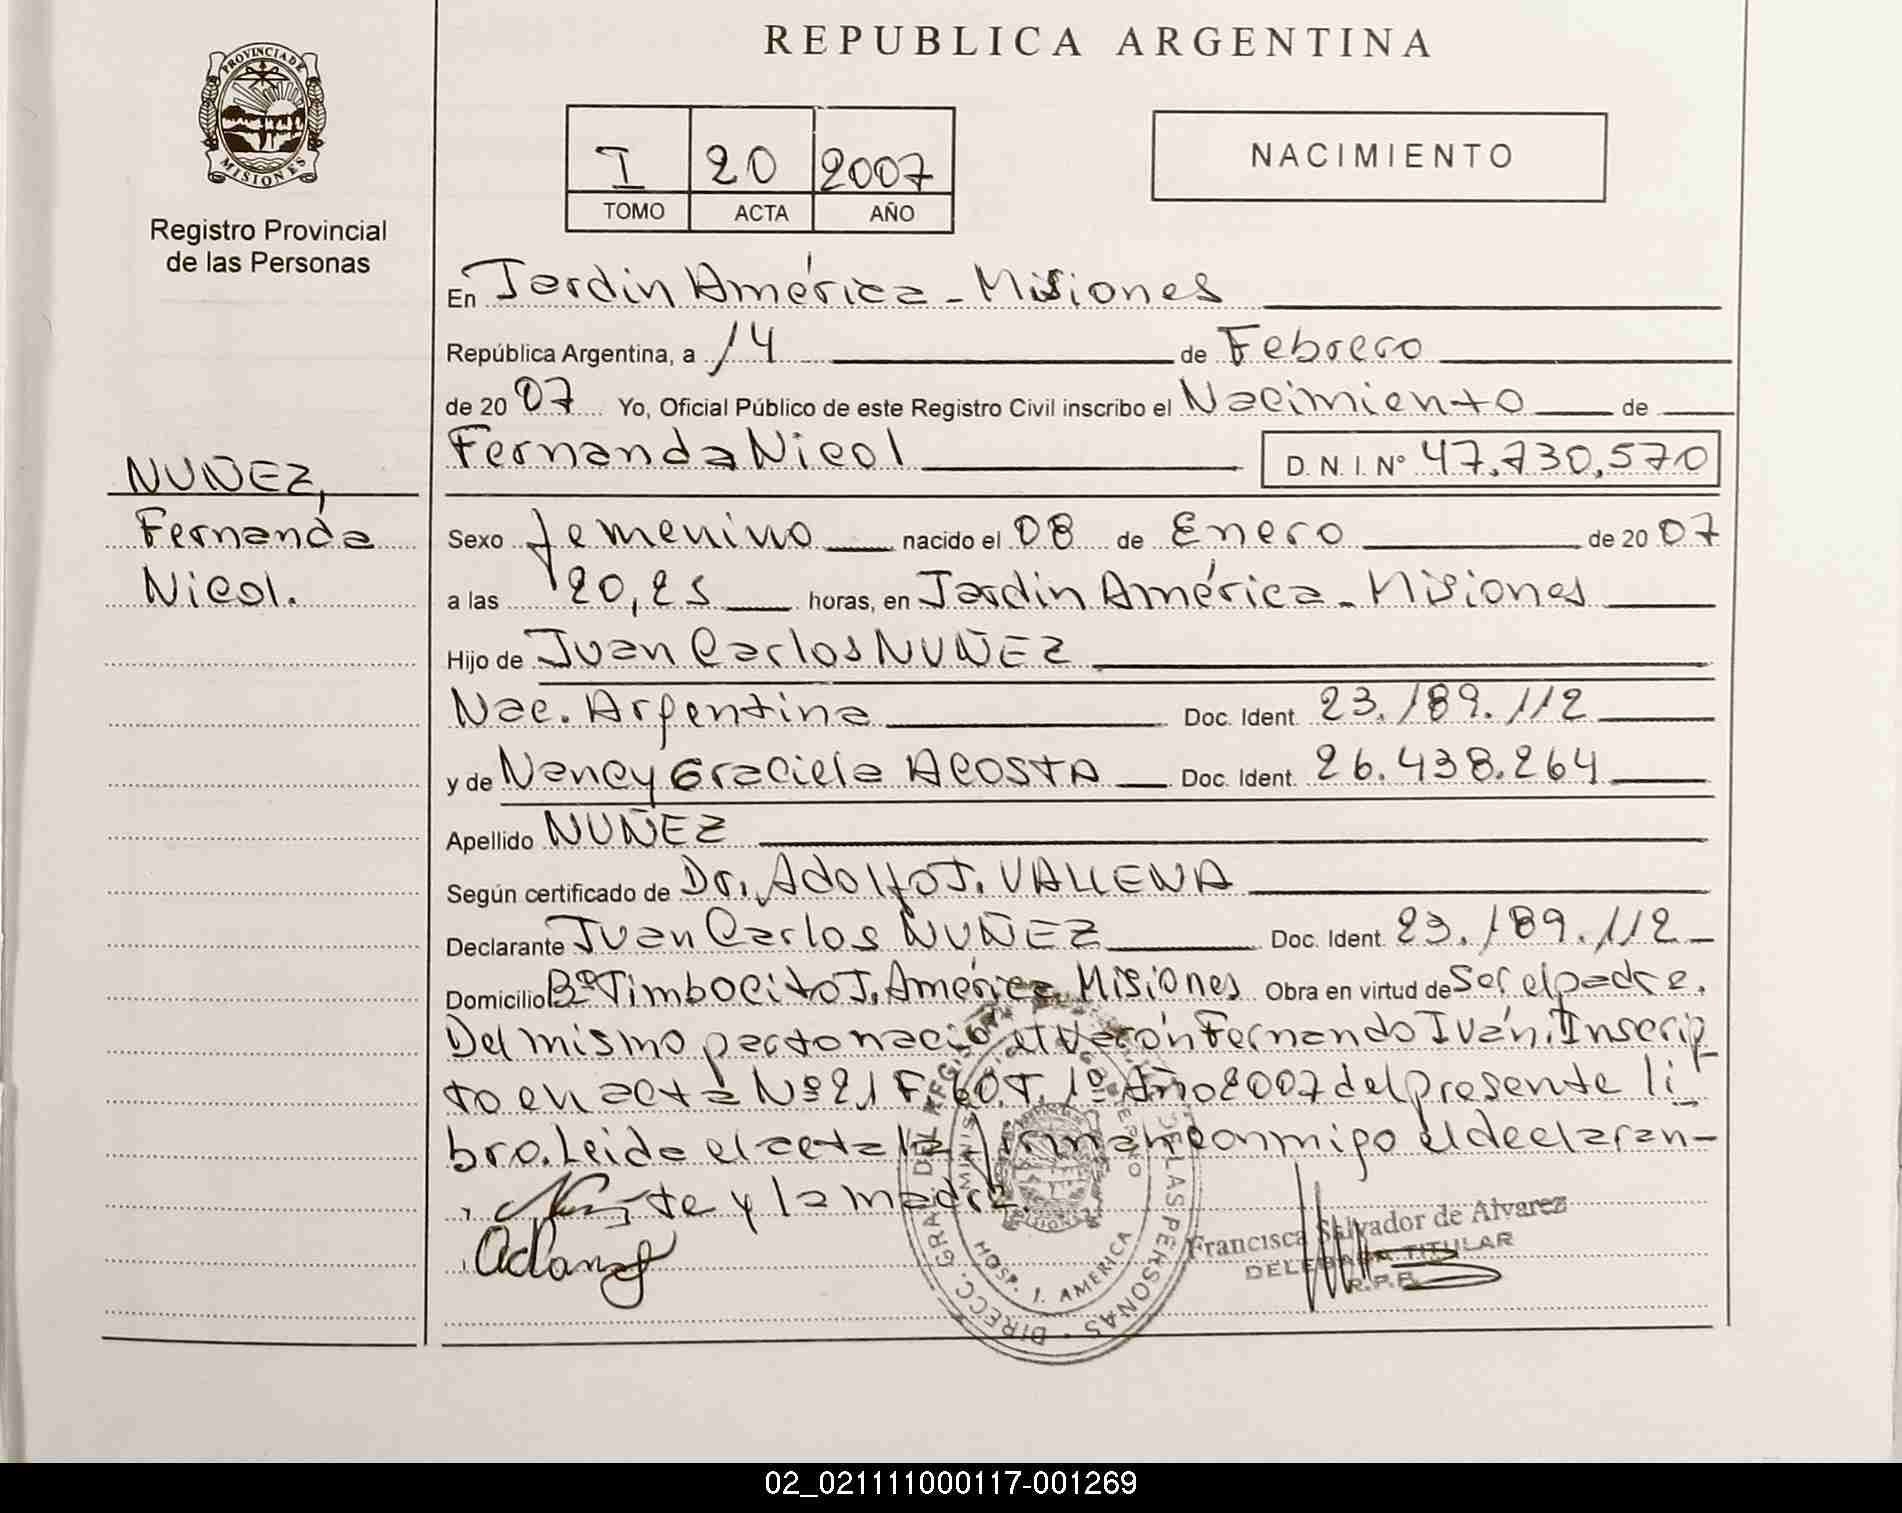 REPUBLICA ARGENTINA
PROVINCIA DE MISIONES
Registro Provincial
de las Personas
I 20 2007
TOMO ACTA AÑO
NACIMIENTO
En Jardín América - Misiones
República Argentina, a 14 de Febrero
de 2007 Yo, Oficial Público de este Registro Civil inscribo el Nacimiento de
Fernanda Nicol D. N. I. Nº 47.730.570
NUÑEZ,
Fernanda
Nicol.
Sexo femenino nacido el 08 de Enero de 2007
a las 20,25 horas, en Jardín América - Misiones
Hijo de Juan Carlos NUÑEZ
Nac. Argentina Doc. Ident. 23.189.112
y de Nancy Graciela ACOSTA Doc. Ident. 26.438.264
Apellido NUÑEZ
Según certificado de Dr. Adolfo J. VALLENA
Declarante Juan Carlos NUÑEZ Doc. Ident. 23.189.112
Domicilio Bº Timbocito J. América Misiones Obra en virtud de Ser el padre.
Del mismo parto nació el Varón Fernando Iván. Inscrip
to en acta Nº 21 F. 60. T. 1º Año 2007 del presente li
bro. Leida el acta la firman conmigo el declaran-
te y la madre.
DIRECC. GRAL. DEL REG. DE LAS PERSONAS
HOSP. J. AMERICA
Francisca Salvador de Alvarez
DELEGADA TITULAR
R.P.P.
02_021111000117-001269